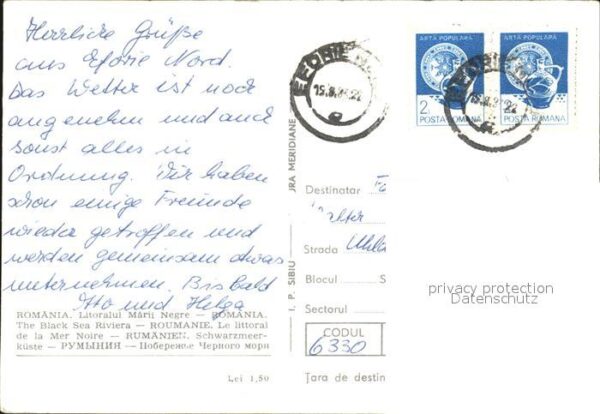 Herrliche Grüße
aus Eforie Nord.
Das Wetter ist noch
angenehm und auch
sonst alles in
Ordnung. Wir haben
schon einige Freunde
wieder getroffen und
werden gemeinsam etwas
unternehmen. Bis bald
Otto und Helga
ROMÂNIA. Litoralul Mării Negre — ROMANIA.
The Black Sea Riviera — ROUMANIE. Le littoral
de la Mer Noire — RUMÄNIEN. Schwarzmeer-
küste — РУМЫНИЯ — Побережье Черного моря
Lei 1,50
I. P. SIBIU
URA MERIDIANE
EFORIE N
ARTĂ POPULARĂ
2
POSTA ROMANA
ARTĂ POPULARĂ
POSTA ROMANA
Destinatar
Walter
Strada
Blocul S
Sectorul
CODUL
6330
Țara de destin
privacy protection
Datenschutz